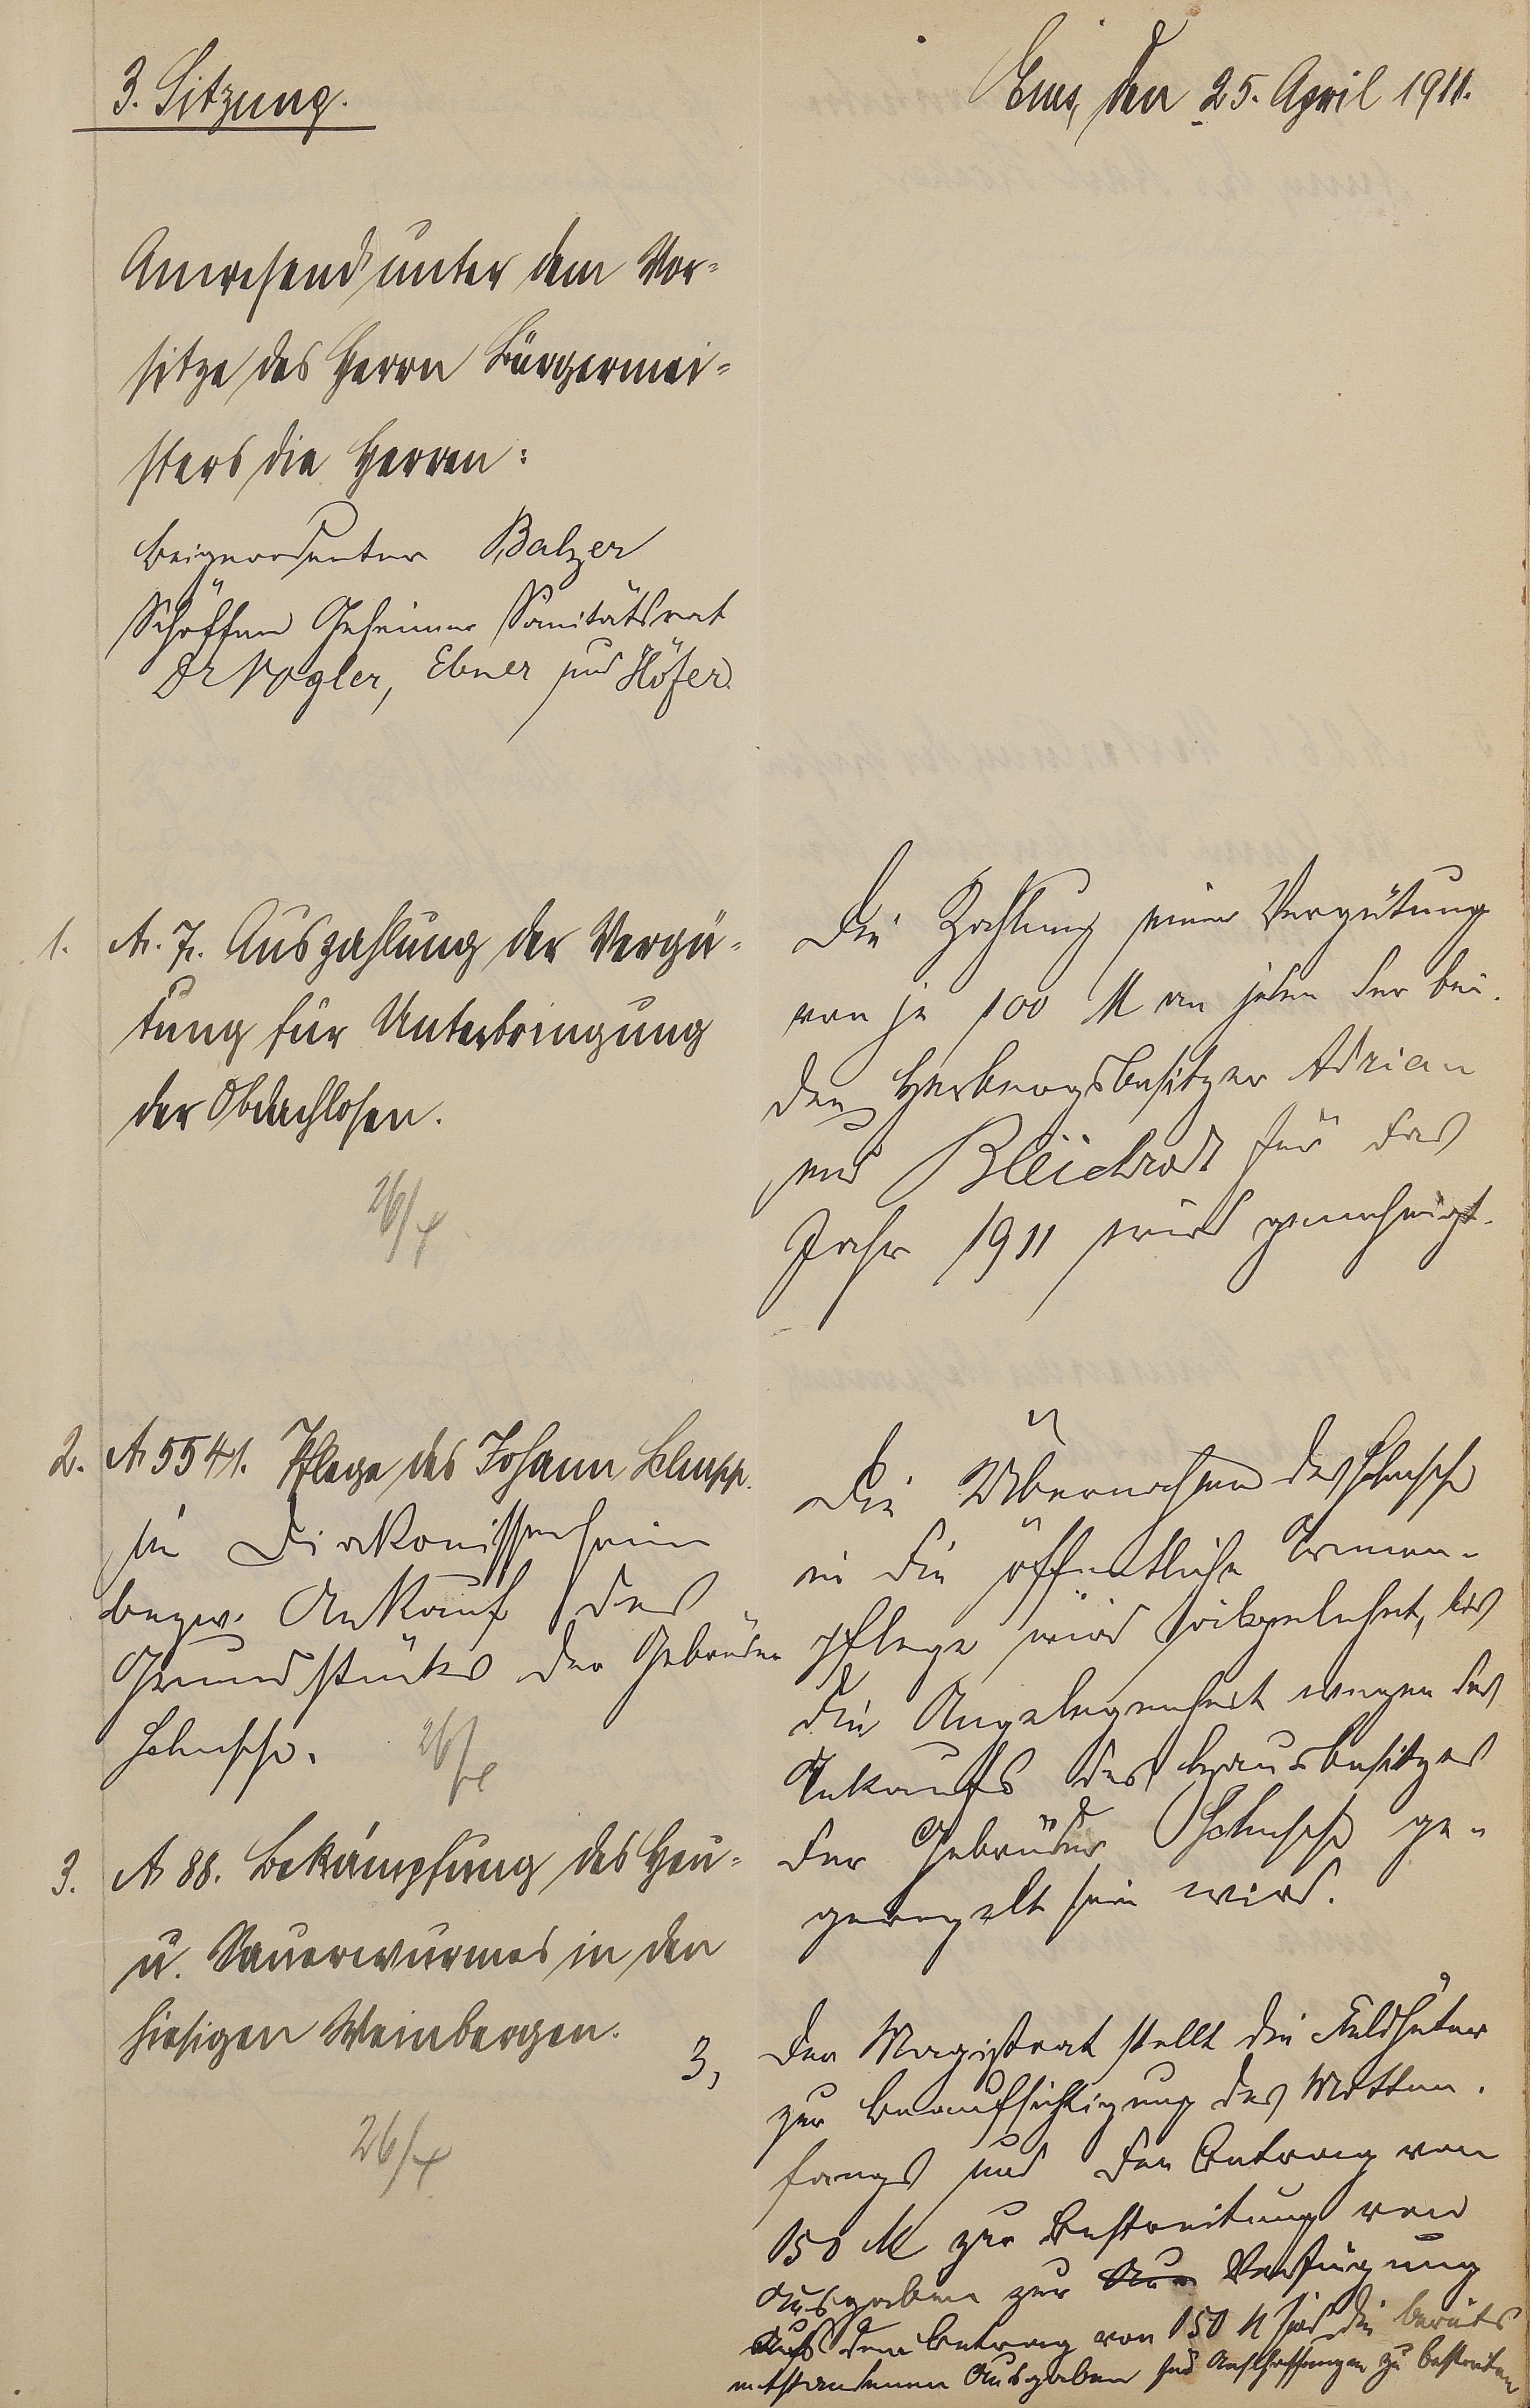 3. Sitzung.
Ems, den 25. April 1911.
Anwesend unter dem Vor=
sitze des Herrn Bürgermei=
sters die Herren:
Beigeordneter Balzer
Schöffen Geheimer Sanitätsrat
Dr Vogler, Ebner und Höfer.
1. A. 7. Auszahlung der Vergü=
tung für Unterbringung
der Obdachlosen.
26/4
Die Zahlung einer Vergütung
von je 100 M an jeden der bei-
den Herbergsbesitzer Adrian
und Bleichrodt für das
Jahr 1911 wird genehmigt.
2. A 5541. Pflege des Johann
im Diakonissenheim
bezw. Ankauf des
Grundstücks der Gebrüder
26/4
Die Übernahme des
in die öffentliche Armen-
pflege wird abgelehnt, bis
die Angelegenheit wegen des
Ankaufs des Hausbesitzes
der Gebrüder ge-
geregelt sein wird.
3. A 88. Bekämpfung des Heu=
u. Sauerwurmes in den
hiesigen Weinbergen.
26/4
3, Der Magistrat stellt die Feldhüter
zur Beaufsichtigung des Motten-
fangs und den Betrag von
150 M zur Bestreitung von
Ausgaben zur Verfügung
Aus dem Betrag von 150 M sind die bereits
entstandenen Ausgaben und Anschaffungen zu bestreiten